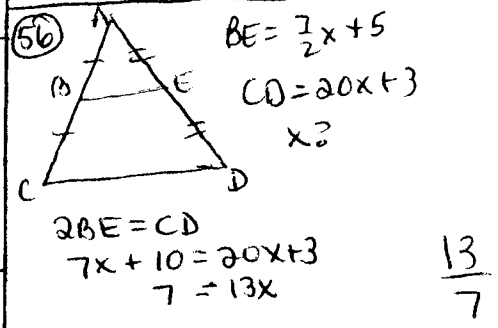 56
A
BE = 7/2 x + 5
B
E
CD = 20x + 3
x?
C
D
2BE = CD
7x + 10 = 20x + 3
7 = 13x
13/7